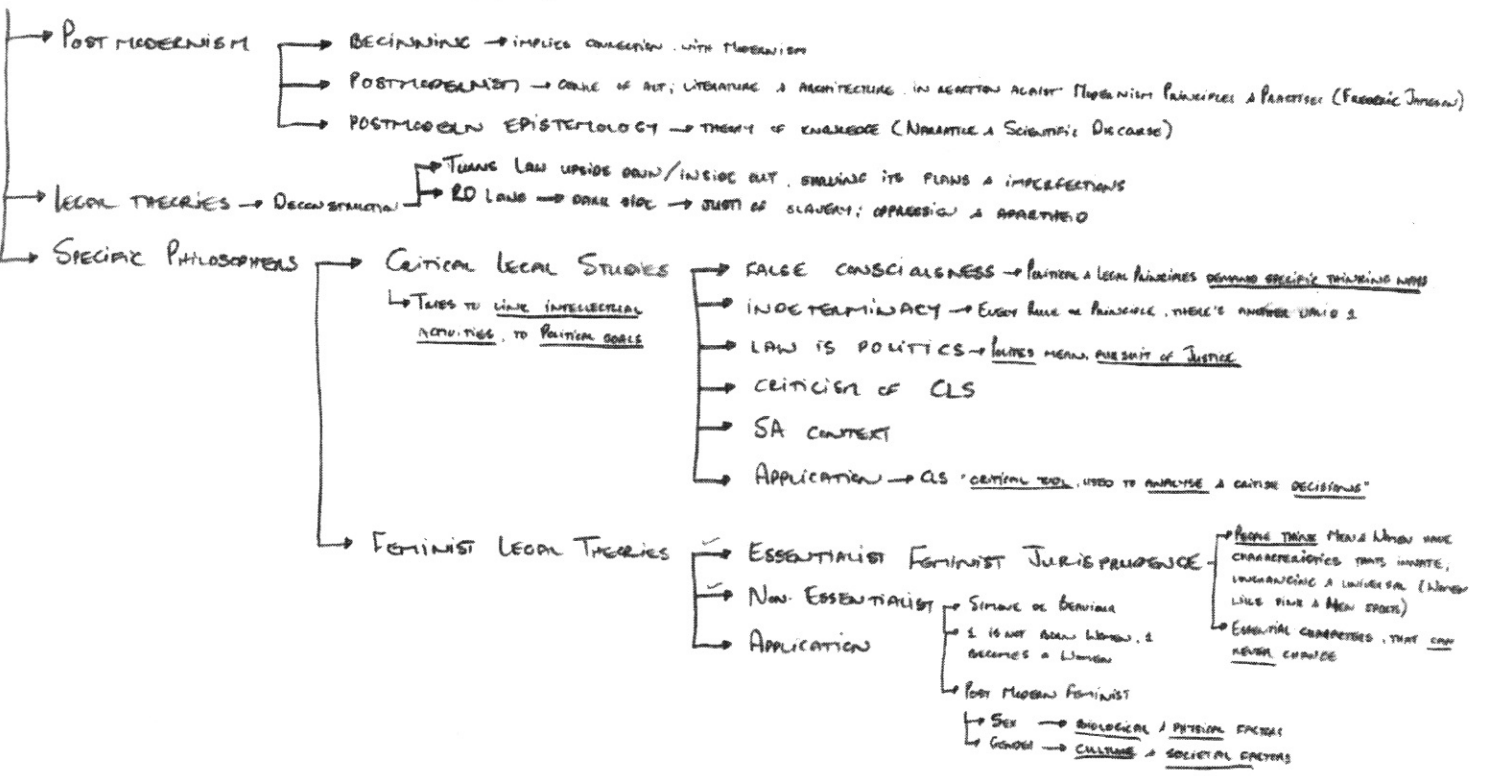 → POSTMODERNISM
→ BEGINNING → IMPLIES CONNECTION WITH MODERNISM
→ POSTMODERNISM → OF ART, LITERATURE & ARCHITECTURE IN REACTION AGAINST MODERNISM PRINCIPLES & PRACTISES (FREDERIC JAMESON)
→ POSTMODERN EPISTEMOLOGY → THEORY OF KNOWLEDGE (NARRATIVE & SCIENTIFIC DISCOURSE)
→ LEGAL THEORIES → DECONSTRUCTION
→ TURNS LAW UPSIDE DOWN/INSIDE OUT, SHOWING ITS FLAWS & IMPERFECTIONS
→ RD LAING → DARK SIDE → JUST. OF SLAVERY, OPPRESSION & APARTHEID
→ SPECIFIC PHILOSOPHERS
→ CRITICAL LEGAL STUDIES
↳ TRIES TO LINK INTELLECTUAL
ACTIVITIES, TO POLITICAL GOALS
→ FALSE CONSCIOUSNESS → POLITICAL & LEGAL PRINCIPLES DEMAND SPECIFIC THINKING WAYS
→ INDETERMINACY → EVERY RULE OR PRINCIPLE, THERE'S ANOTHER VALID 1
→ LAW IS POLITICS → POLITICS MEAN, PURSUIT OF JUSTICE
→ CRITICISM OF CLS
→ SA CONTEXT
→ APPLICATION → CLS "CRITICAL TOOL, USED TO ANALYSE & CRITISE DECISIONS"
→ FEMINIST LEGAL THEORIES
→ ESSENTIALIST FEMINIST JURISPRUDENCE
→ PEOPLE THINK MEN & WOMEN HAVE
CHARACTERISTICS THATS INNATE,
UNCHANGING & UNIVERSAL (WOMEN
LIKE PINK & MEN SPORTS)
→ ESSENTIAL CHARACTERS, THAT CAN
NEVER CHANGE
→ NON-ESSENTIALIST
→ SIMONE DE BEAUVOIR
→ 1 IS NOT BORN WOMEN, 1
BECOMES A WOMEN
→ POST MODERN FEMINIST
→ SEX → BIOLOGICAL & PHYSICAL FACTORS
→ GENDER → CULTURE & SOCIETAL FACTORS
→ APPLICATION